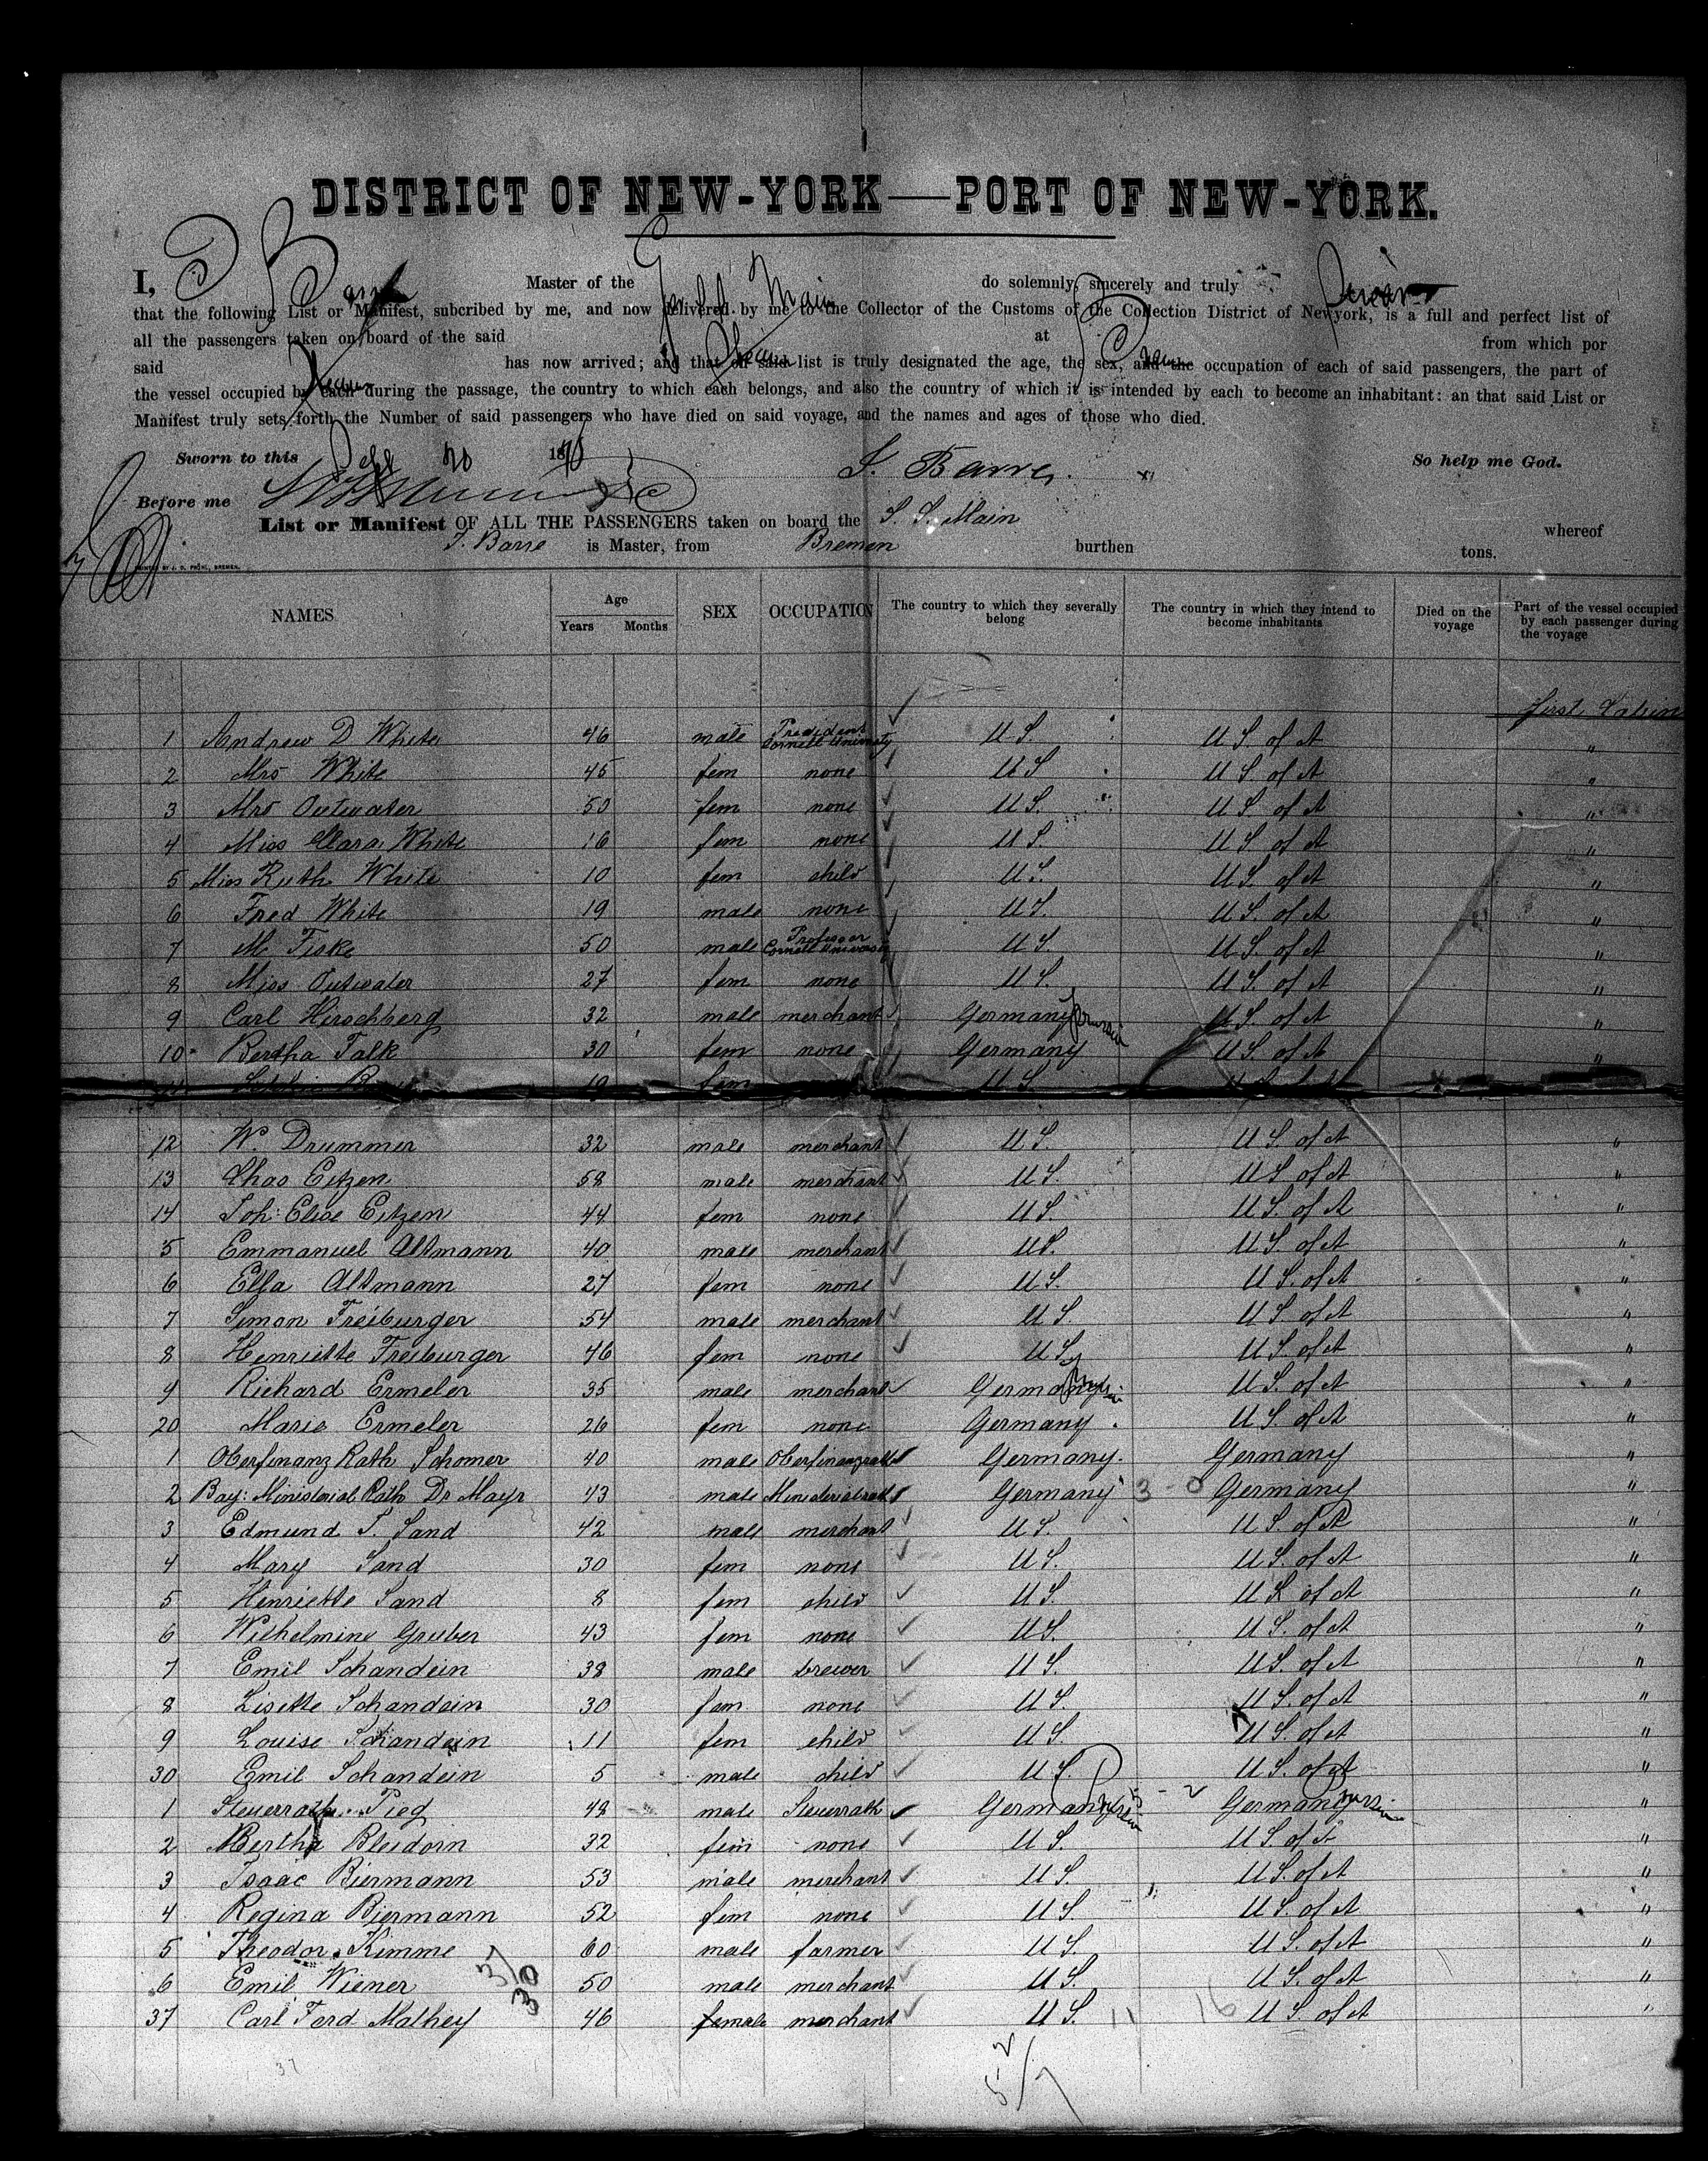 DISTRICT OF NEW-YORK—PORT OF NEW-YORK.
I, Master of the do solemnly, sincerely and truly Swear
that the following List or Manifest, subcribed by me, and now delivered by me to the Collector of the Customs of the Collection District of Newyork, is a full and perfect list of
all the passengers taken on board of the said at from which por
said has now arrived; and that on said list is truly designated the age, the sex, and the occupation of each of said passengers, the part of
the vessel occupied by each during the passage, the country to which each belongs, and also the country of which it is intended by each to become an inhabitant: an that said List or
Manifest truly sets forth the Number of said passengers who have died on said voyage, and the names and ages of those who died.
Sworn to this 20 18 So help me God.
Before me
List or Manifest OF ALL THE PASSENGERS taken on board the S. S. Main whereof
is Master, from Bremen burthen tons.
PRINTED BY J. D. PRÖHL, BREMEN.
NAMES Age Years Months SEX OCCUPATION The country to which they severally belong The country in which they intend to become inhabitants Died on the voyage Part of the vessel occupied by each passenger during the voyage
First Cabin
1 Andrew D White 46 male President Cornell University U S. U S. of A "
2 Mrs White 45 fem none U S U S. of A "
3 Mrs Outwater 50 fem none U S. U S. of A "
4 Miss Clara White 16 fem none U S. U S. of A "
5 Miss Ruth White 10 fem child U S. U S. of A "
6 Fred White 19 male none U S. U S. of A "
7 M. Fiske 50 male Professor Cornell University U S. U S. of A "
8 Miss Outwater 27 fem none U S. U S. of A "
9 Carl Hirschberg 32 male merchant Germany Prussia U S. of A "
10 Bertha Falk 30 fem none Germany U S. of A "
19 fem U S.
12 W. Drummer 32 male merchant U S. U S. of A "
13 Chas Eitzen 58 male merchant U S. U S of A "
14 Joh: Elise Eitzen 44 fem none U S. U S. of A "
5 Emmanuel Altmann 40 male merchant U S. U S. of A "
6 Ella Altmann 27 fem none U S. U S. of A "
7 Simon Freiburger 54 male merchant U S. U S. of A "
8 Henriette Freiburger 46 fem none U S. U S. of A "
9 Richard Ermeler 35 male merchant Germany U S. of A "
20 Marie Ermeler 26 fem none Germany U S. of A "
1 Oberfinanz Rath Schomer 40 male Oberfinanzrath Germany. Germany "
2 Bay: Ministerial Rath Dr Mayr 43 male Ministerialrath Germany 3 - 0 Germany "
3 Edmund T. Sand 42 male merchant U S. U S. of A "
4 Mary Sand 30 fem none U S. U S. of A "
5 Henriette Sand 8 fem child U S. U S. of A "
6 Wilhelmine Gruber 43 fem none U S. U S. of A "
7 Emil Schandein 38 male brewer U S. U S. of A "
8 Lisette Schandein 30 fem none U S. U S. of A "
9 Louise Schandein 11 fem child U S. U S. of A "
30 Emil Schandein 5 male child U S. U S. of A "
1 Steuerrath Pieg 48 male Steuerrath Germany Prussia - 2 Germany Prussia "
2 Bertha Bleidorn 32 fem none U S. U S of A "
3 Isaac Biermann 53 male merchant U S. U S. of A "
4 Regina Biermann 52 fem none U S. U S. of A "
5 Theodor Kimme 60 male farmer U S. U S. of A "
6 Emil Wiener 50 male merchant U S. U S. of A "
37 Carl Ferd Mathey 46 female merchant U S. 11 16 U S. of A "
37